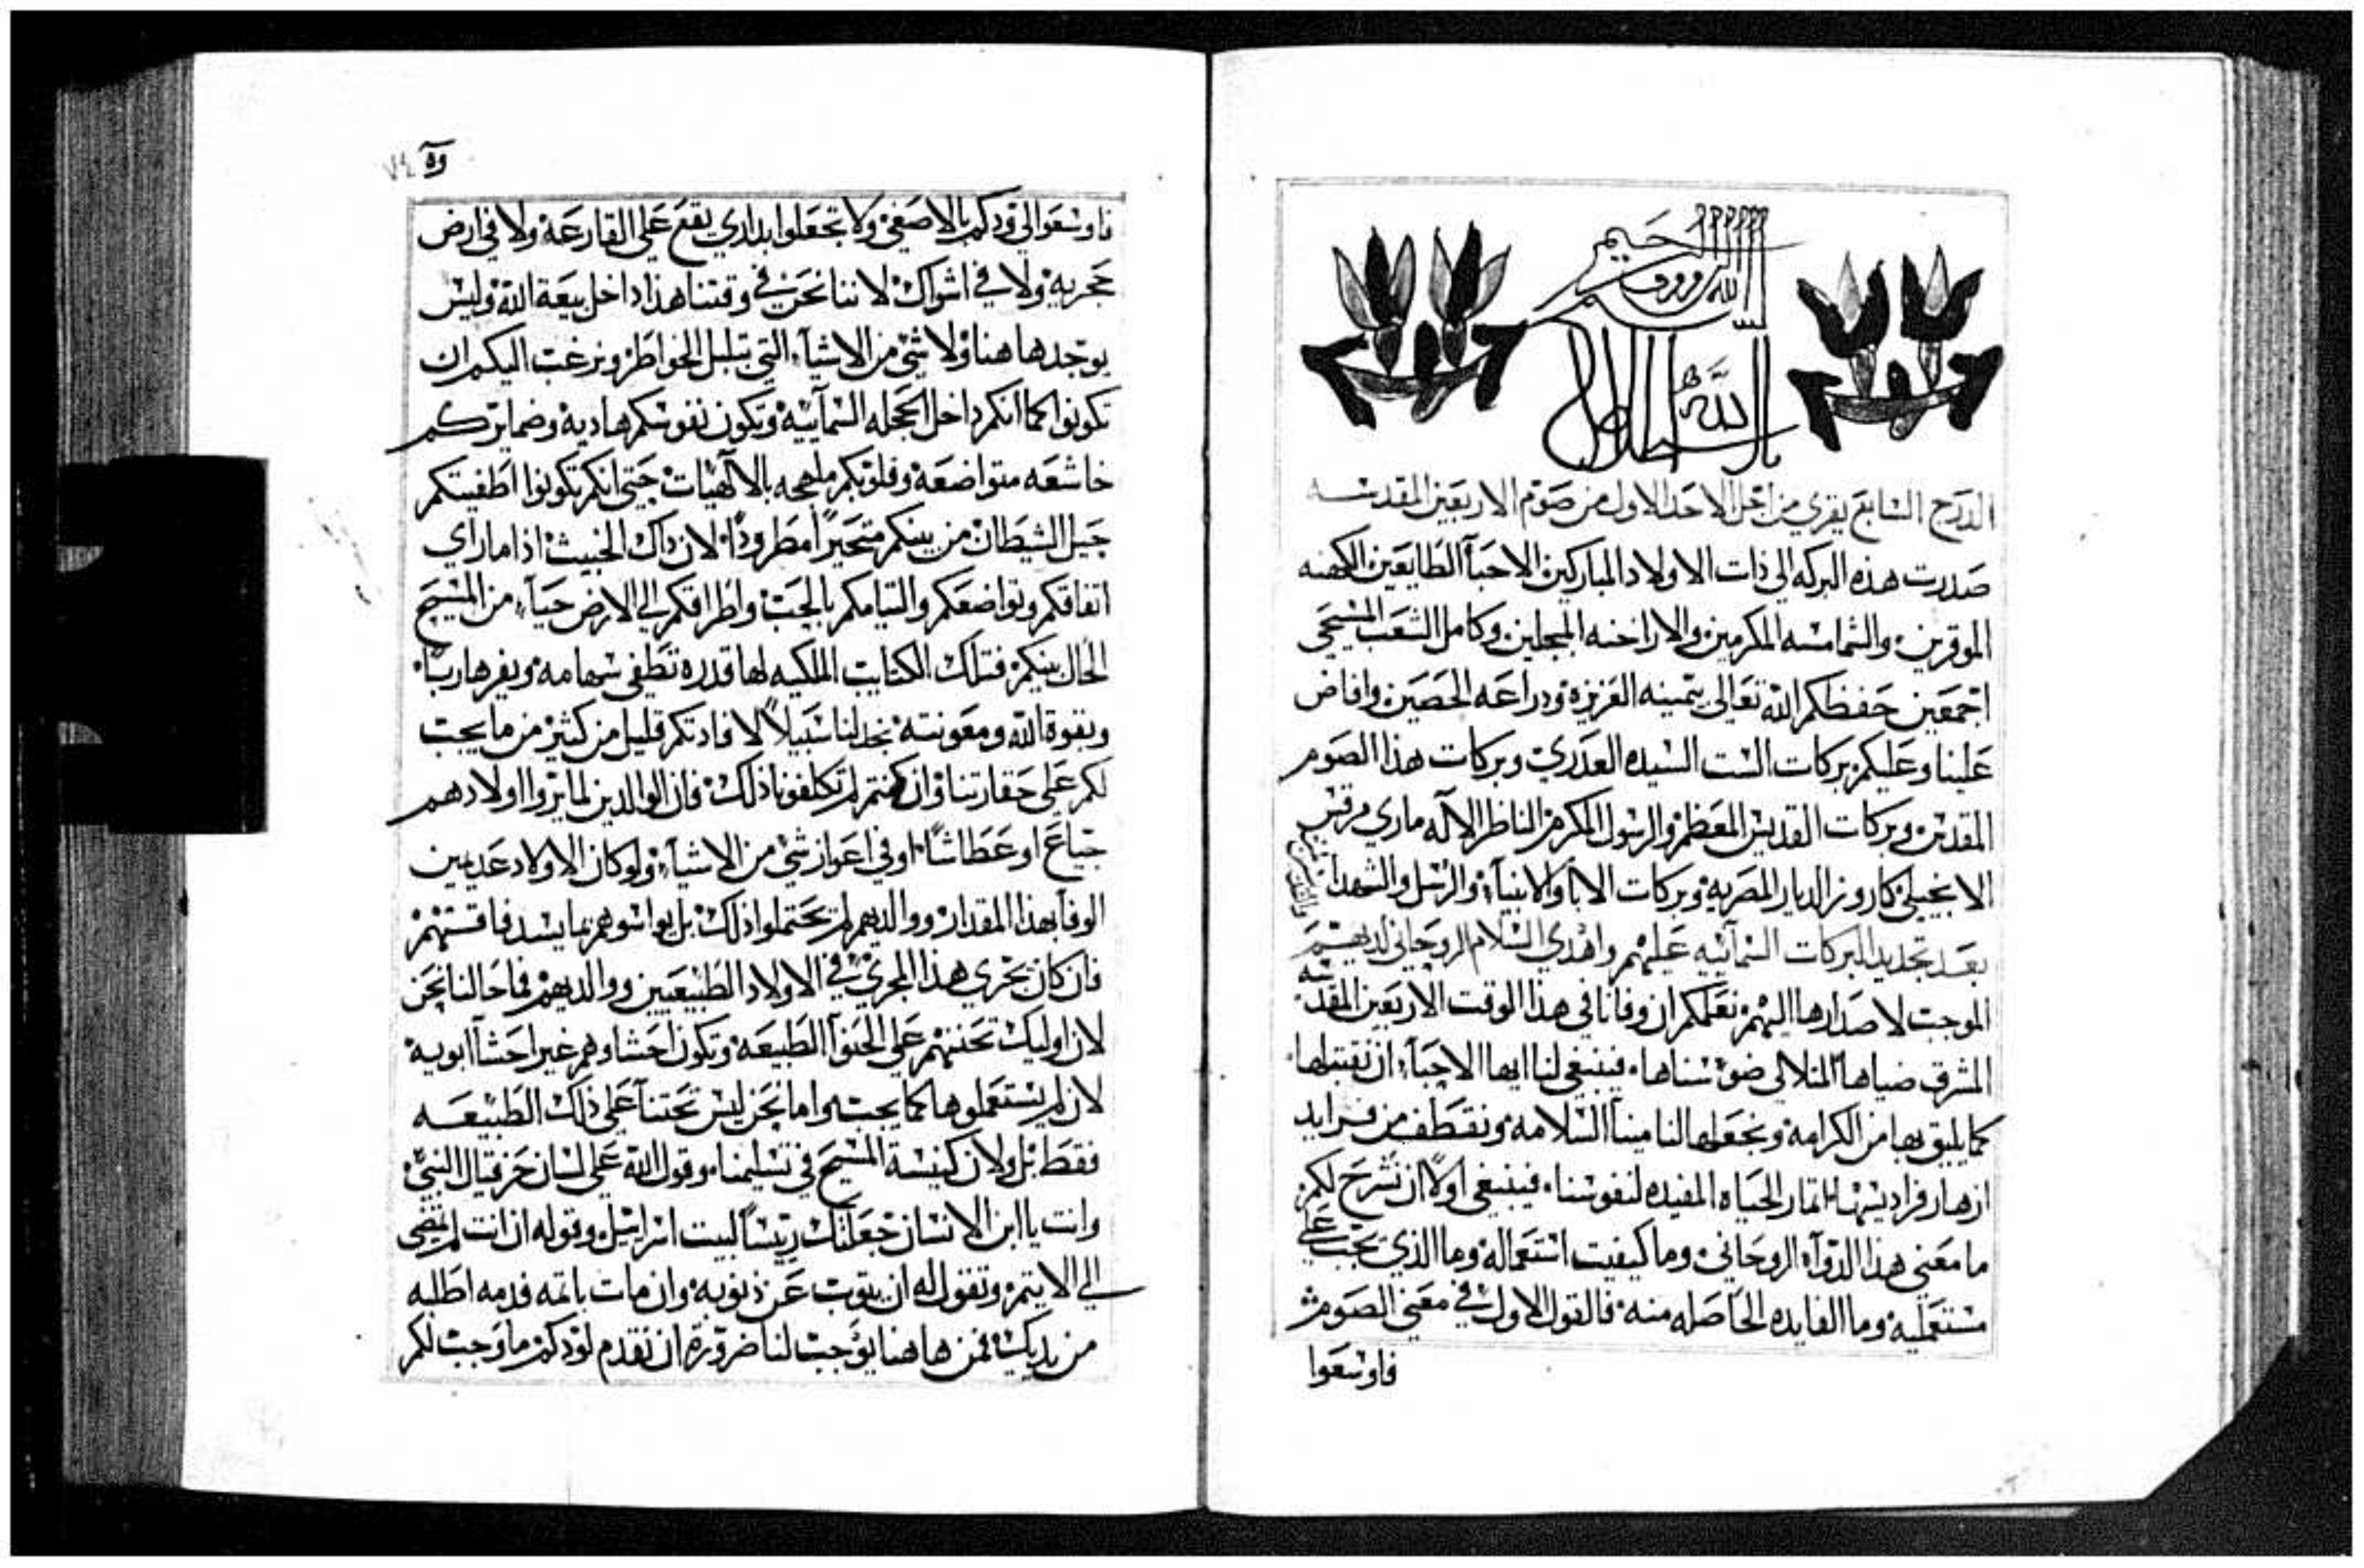 بسم الله الرووف الرحيم
الدرج السابع يقري من اجل الاحد الاول من صوم الاربعين المقدسه
صدرت هذه البركه الي ذات الاولاد المباركين الاحبآ الطايعين الكهنه
الموقرين والشمامسه المكرمين والاراخنه المبجلين وكامل الشعب المسيحي
اجمعين حفظكم الله تعالي بيمينه العزيزه ودراعه الحصين وافاض
علينا وعليكم بركات الست السيده العدري وبركات هذا الصوم
المقدس وبركات القديس المعظم والرسول المكرم الناظر الاله ماري مرقس
الانجيلي كاروز الديار المصريه وبركات الابآ والانبيآ والرسل والشهدا
بعد تجديد البركات السمآئيه عليهم واهدي السلام الروحاني لديهم
الموجب لاصدارها اليهم نعلمكم ان وفانا في هذا الوقت الاربعين المقدسه
المشرق ضياها المتلالي ضو سناها فينبغي لنا ايها الاحبآ ان نقتبلها
كما يليق بها من الكرامه ونجعلها لنا مينآ السلامه ونقتطف من فرايد
ازهار فراديسها اثمار الحياه المفيده لنفوسنا فينبغي اولاً ان نشرح لكم
ما معني هذا الدوآ الروحاني وما كيفيت استعماله وما الذي يجب علي
مستعمليه وما الفايده الحاصله منه فالقول الاول في معني الصوم
فاوسعوا
وه ٧٤
فاوسعوا الي ودكم بالاصغي ولا تجعلوا بداري يقع علي القارعه ولا في ارض
حجريه ولا في اشواك لاننا نحن في وقتنا هذا داخل بيعة الله وليس
يوجد هاهنا ولا شي من الاشيآء التي تبلبل الخواطر ونرغب اليكم ان
تكونوا كما انكم داخل الحجله السمآييه وتكون نفوسكم هاديه وضمايركم
خاشعه متواضعه وقلوبكم ملهجه بالالهيات حتي انكم تكونوا اطفيتكم
حيل الشيطان من بينكم متحيراً مطروداً لان داك الخبيث اذا ما راي
اتفاقكم وتواضعكم والتيامكم بالحب واطراقكم الي الارض حيآء من المسيح
الحال بينكم فتلك الكتايب الملكيه لها قدره تطفي سهامه ويفر هارباً
وبقوة الله ومعونته نجد لنا سبيلاً لافادتكم قليل من كثير من ما يجب
لكم علي حقارتنا وان كنتم لم تكلفونا ذلك فان الوالدين لما يروا اولادهم
جياع او عطاشاً او في اعواز شي من الاشيآء ولو كان الاولاد عديمين
الوفآ بهذا المقدار ووالديهم لم يحتملوا ذلك بل يواسوهم بما يسد فاقتهم
فان كان يجري هذا المجري في الاولاد الطبيعيين ووالديهم فما حالنا نحن
لان اوليك تحننهم علي الحنوآ الطبيعه وتكون احشاوهم غير احشآ ابويه
لان لم يستعملوها كما يجب واما نحن ليس تحتنآ علي ذلك الطبيعه
فقط بل ولان كنيسة المسيح في تسليمنا وقول الله علي لسان حزقيال النبي
وانت يا ابن الانسان جعلتك رئيساً لبيت اسرائيل وقوله ان انت لم تمضي
الي الايتم وتقول له ان يتوب عن ذنوبه وان مات باثمه فدمه اطلبه
من يديك فمن هاهنا يوجب لنا ضرورة ان نقدم لودكم ما وجب لكم